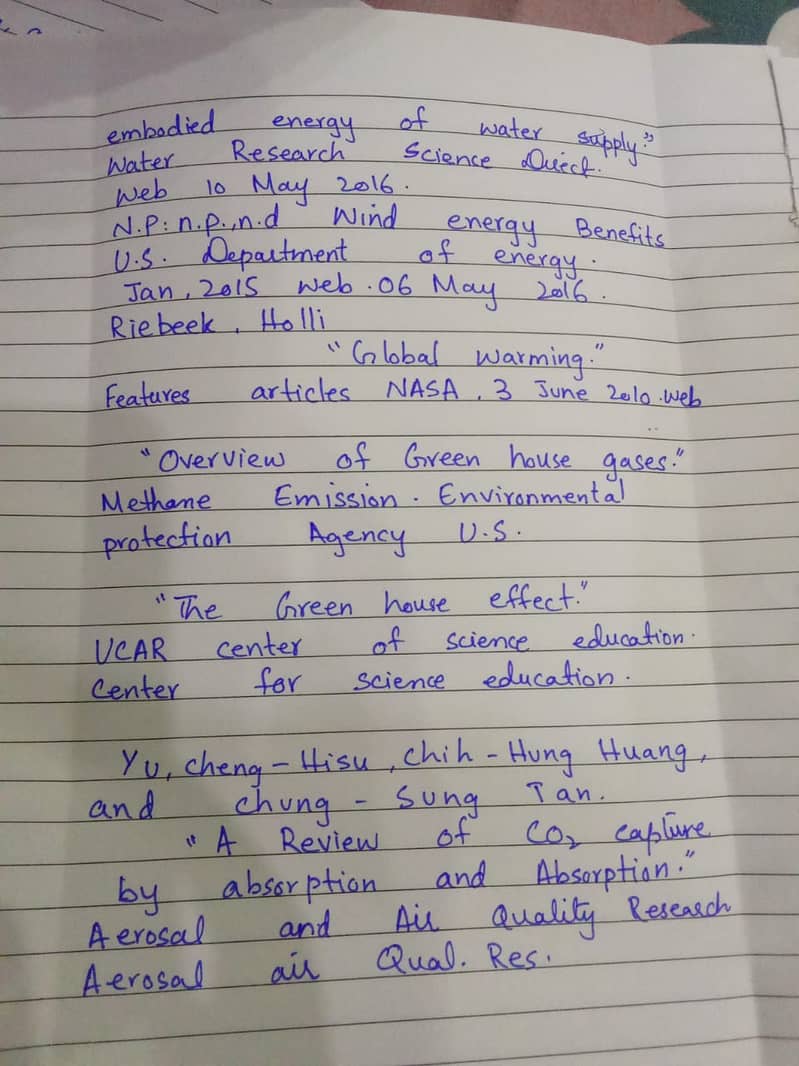 embodied energy of water supply."
Water Research Science Direct.
Web 10 May 2016.
N.P: n.p., n.d Wind energy Benefits
U.S. Department of energy.
Jan, 2015 Web. 06 May 2016.
Riebeek, Holli
"Global warming."
Features articles NASA, 3 June 2010. Web
"Overview of Green house gases."
Methane Emission. Environmental
protection Agency U.S.
"The Green house effect."
UCAR center of science education.
Center for science education.
Yu, Cheng-Hisu, Chih-Hung Huang,
and Chung-Sung Tan.
"A Review of CO₂ capture
by absorption and Absorption."
Aerosal and Air Quality Research
Aerosal air Qual. Res.